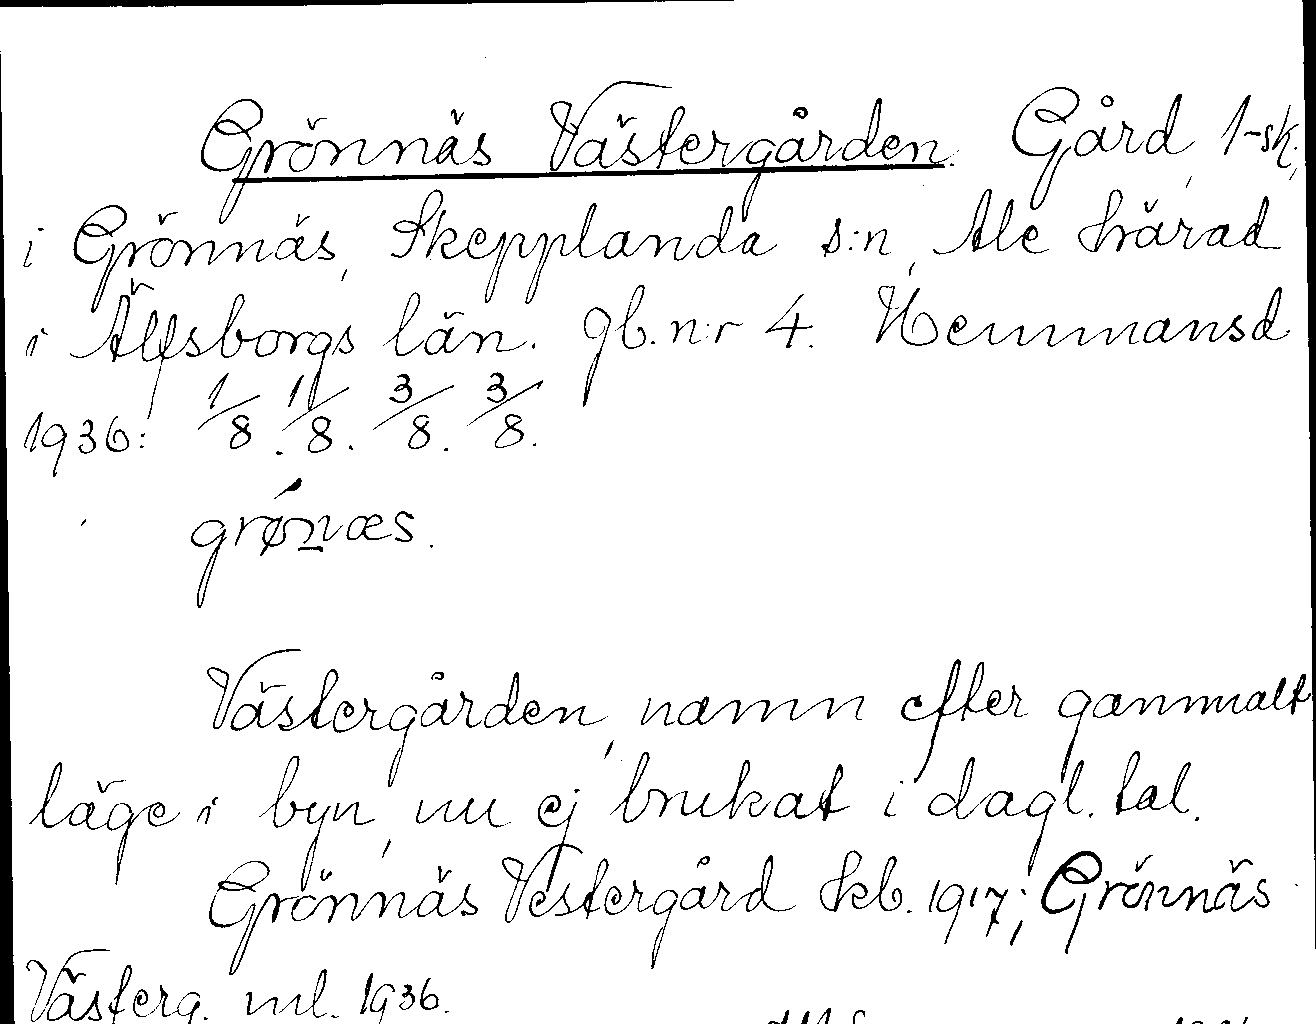 Grönnäs Västergården. Gård, 1-sk.,
i Grönnäs, Skepplanda s:n, Ale härad
i Älfsborgs län. Jb. n:r 4. Hemmansd
1936: 1/8. 11/8. 3/8. 3/8.
grǿn̲æs.
Västergården, namn efter gammalt
läge i byn, nu ej brukat i dagl. tal.
Grönnäs Vestergård Skb. 1917; Grönnäs
Västerg. ml. 1936.